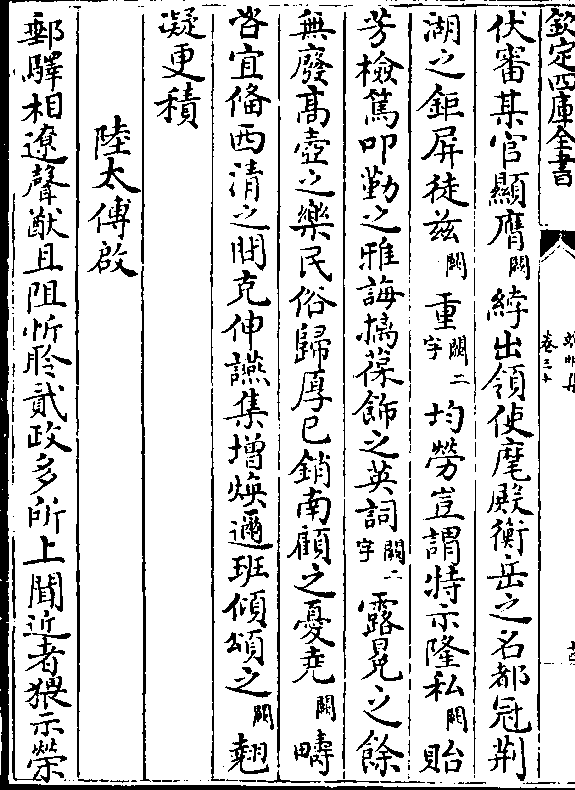 欽定四庫全書
卷三十
伏審某官顯膺闕綍出領使麾殿衡岳之名都冠荆
湖之鉅屏徒兹闕重闕二字均勞豈謂特示隆私闕貽
芳檢篤叩勤之雅誨摛葆飾之英詞闕二字露冕之餘
無廢高壺之樂民俗歸厚已銷南顧之憂堯闕疇
咨宜俻西清之問克伸讌集增煥邇班傾頌之闕翹
凝更積
陸太傅啟
郵驛相遼聲猷且阻忻聆貳政多所上聞近者猥示榮